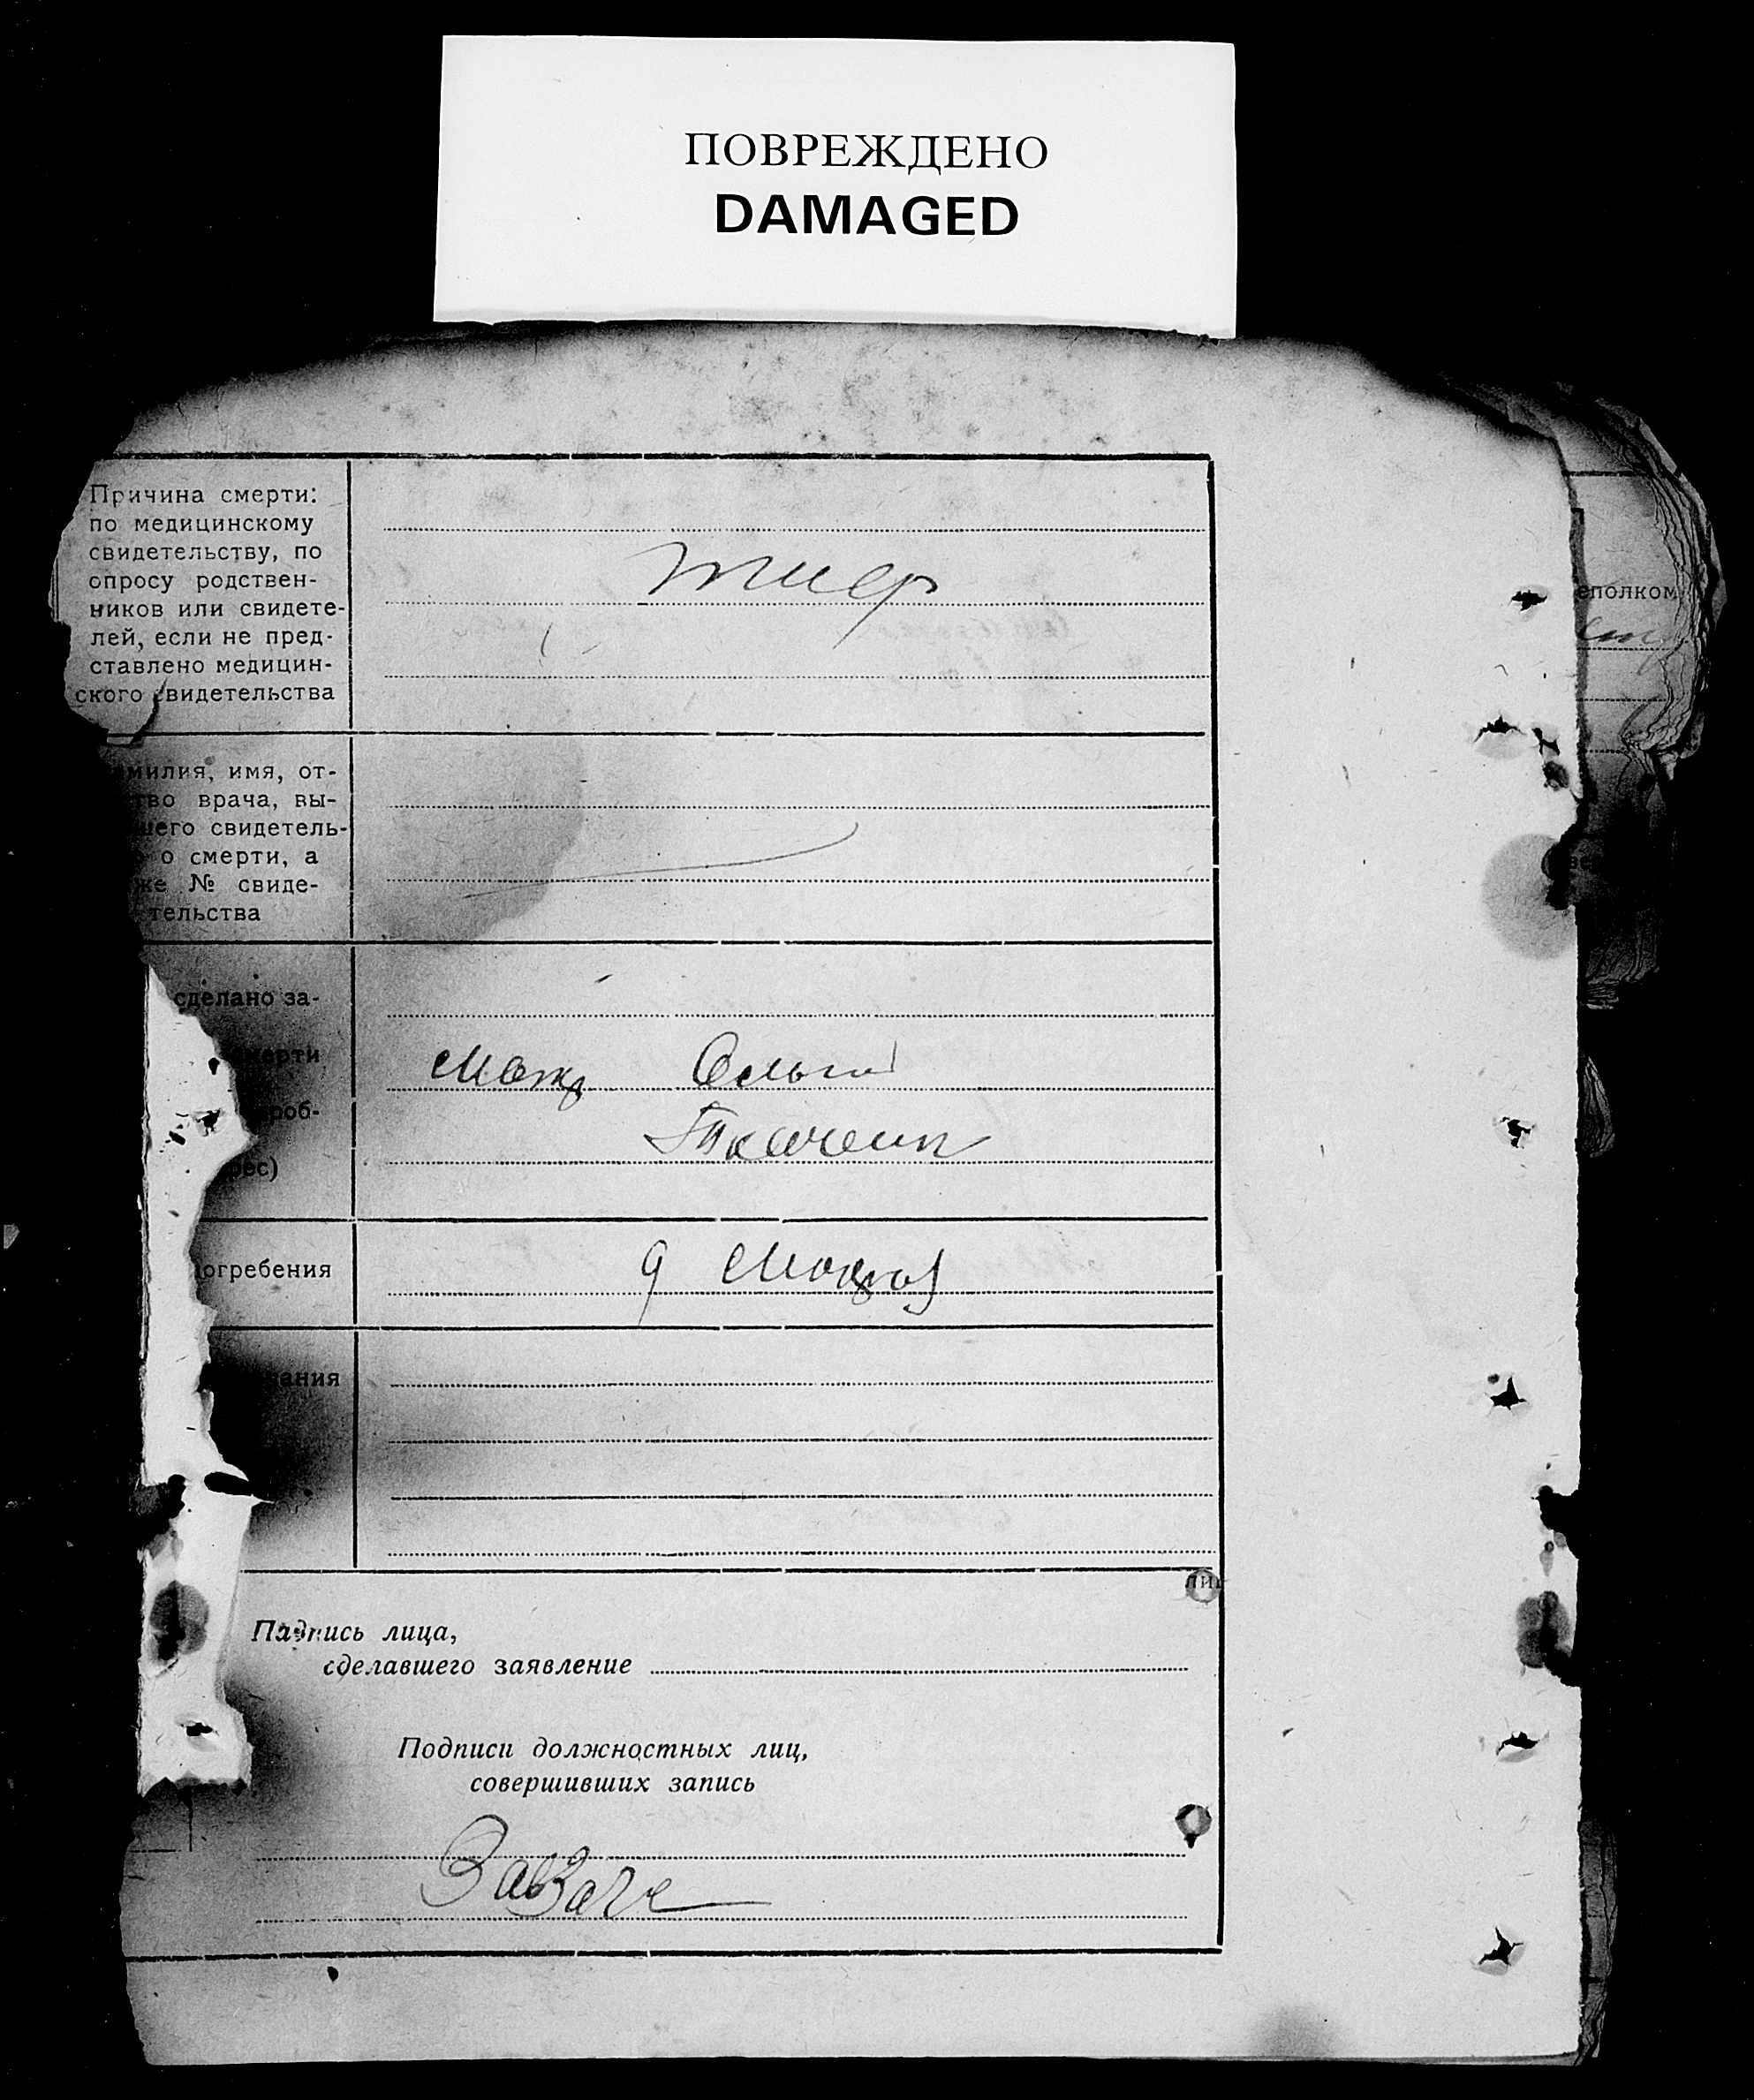 ПОВРЕЖДЕНО
DAMAGED
Причина смерти:
по медицинскому
свидетельству, по
опросу родствен-
ников или свидете-
лей, если не пред-
ставлено медицин-
ского свидетельства
тиф
милия, имя, от-
тво врача, вы-
шего свидетель-
о смерти, а
же № свиде-
тельства
сделано за-
мерти
роб-
рес)
Ольга
огребения
9
ания
Подпись лица,
сделавшего заявление
Подписи должностных лиц,
совершивших запись
еполком